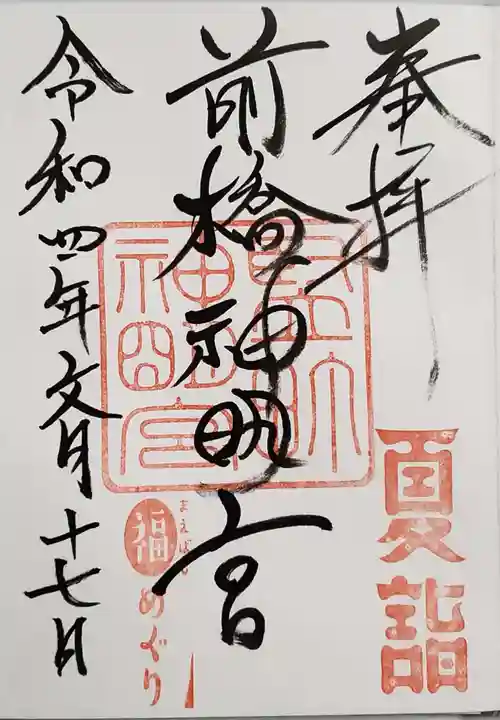 奉拝
夏詣
前橋神明宮
まえばし
福めぐり
令和四年文月十七日